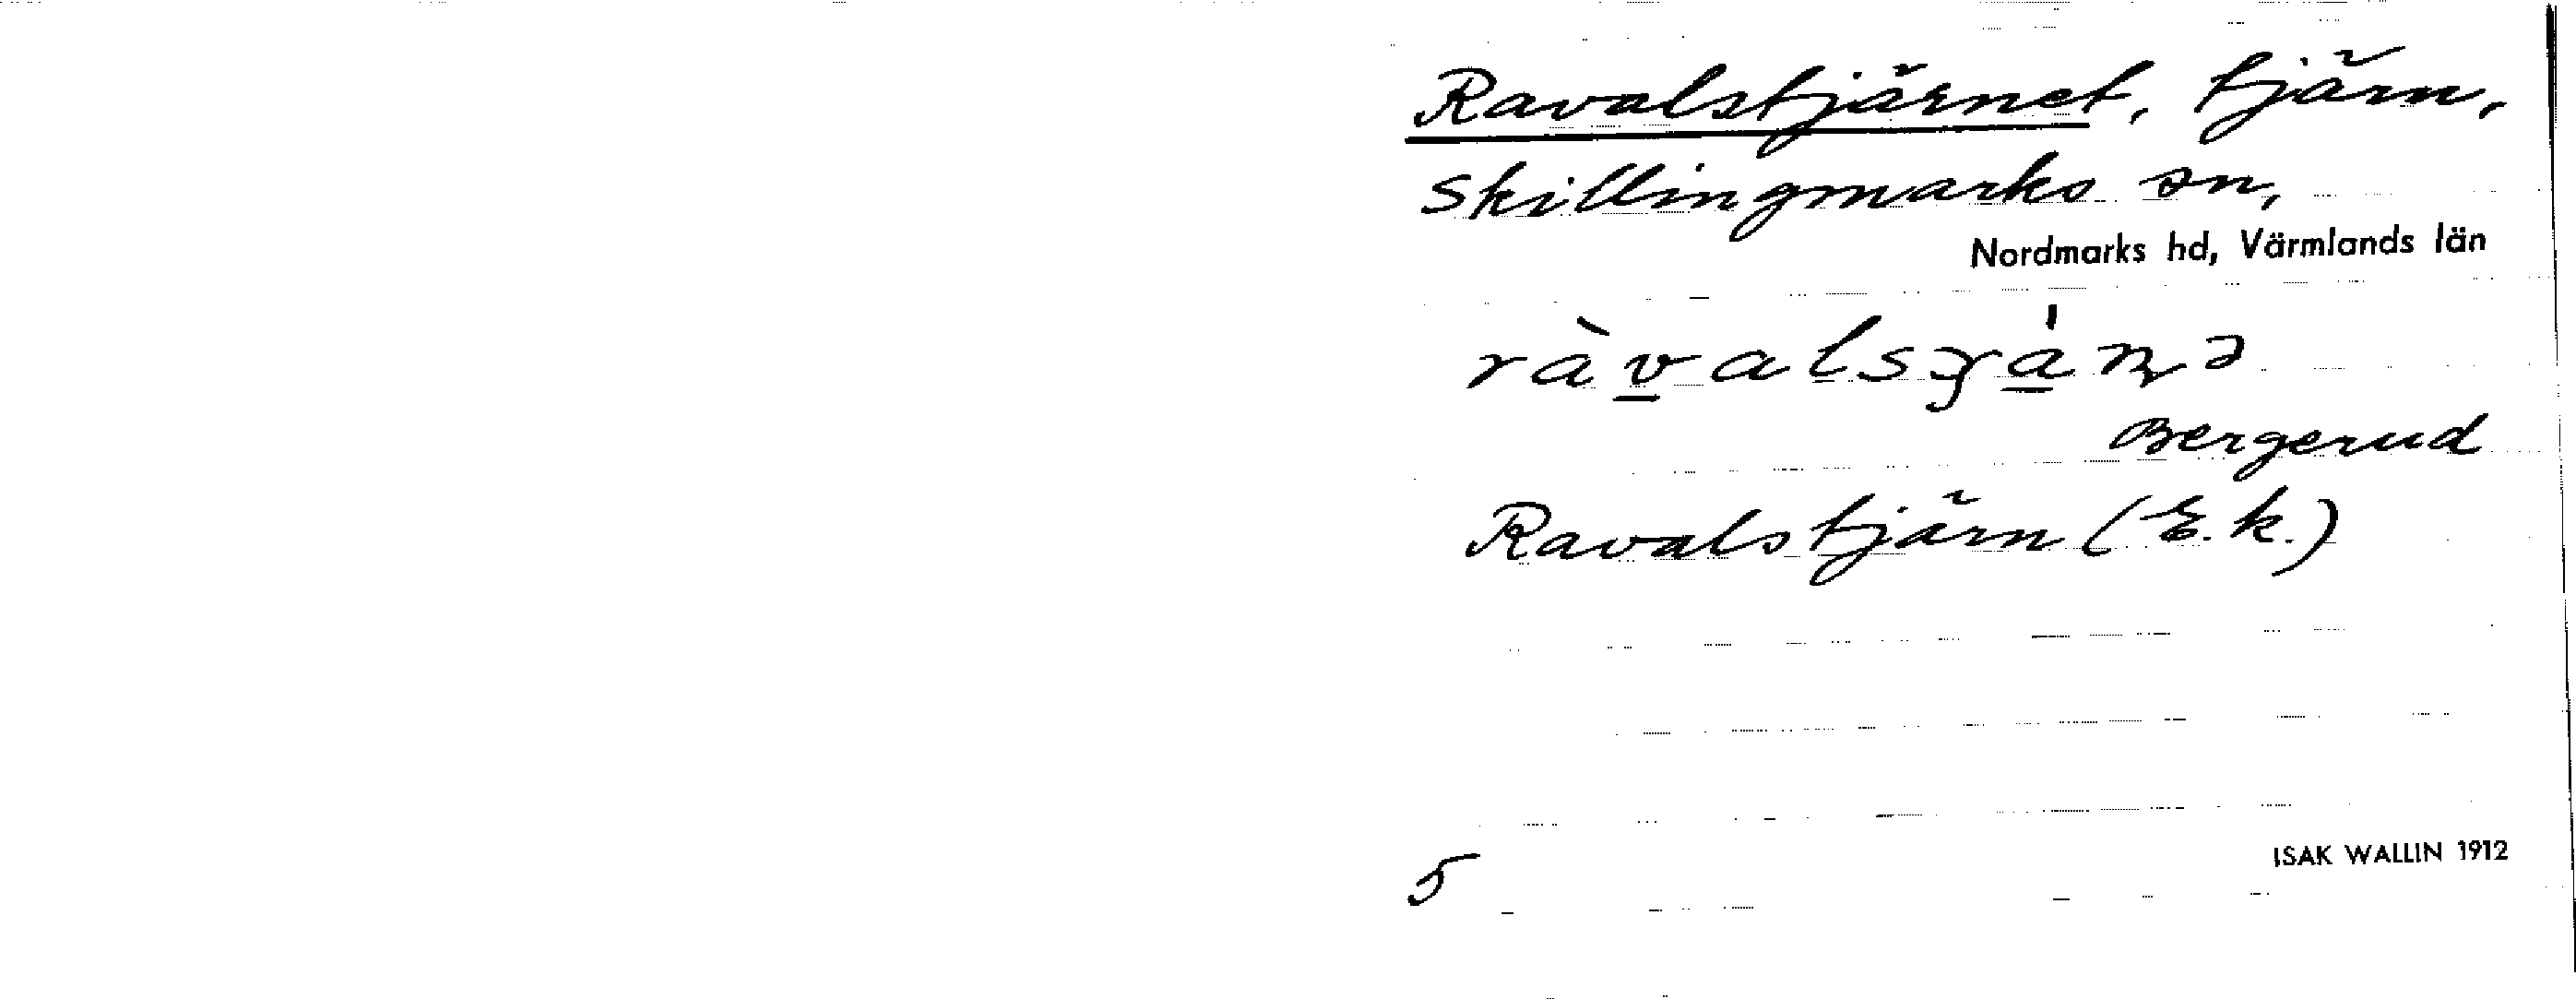 Ravalstjärnet, tjärn,
Skillingmarks sn,
Nordmarks hd, Värmlands län
Bergerud
Ravalstjärn (E.k.)
5
ISAK WALLIN 1912